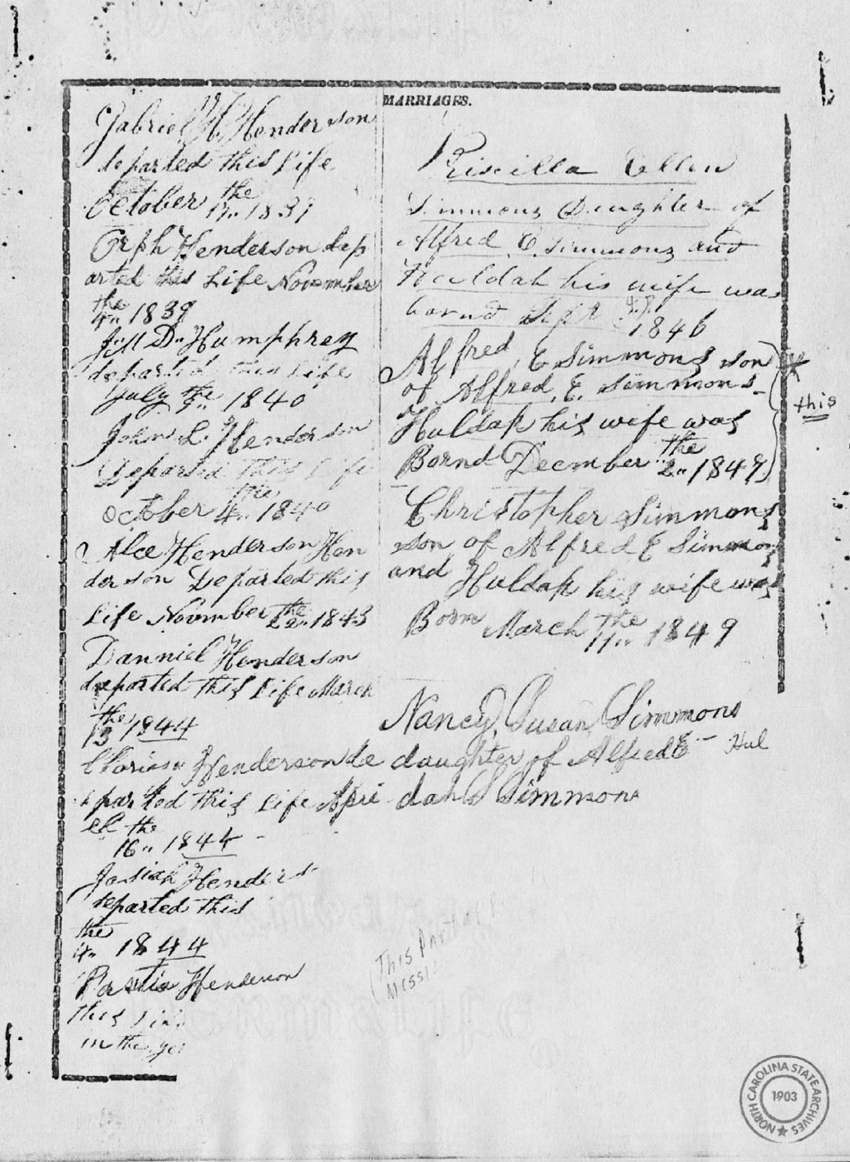 MARRIAGES.
Gabriel H. Henderson
departed this Life
October the
17" 1839
Orph Henderson dep
arted this Life November
the
4" 1839
D" Humphrey
departed this Life
July the
1840
John L. Henderson
Departed this Life
October the
4" 1840
Alce Henderson Hen
derson Departed this
Life November the
22" 1843
Danniel Henderson
departed this Life March
the
13 1844
Henderson de
parted this Life Apri
el the
16" 1844
Josiah Henders
departed this
the
4" 1844
Henderson
this
in the
Priscilla Ellen
Simmons Daughter of
Alfred E Simmons and
Hauldah his wife was
bornd Sept
1846
Alfred E Simmons son
of Alfred E. Simmons
Huldah his wife was
Bornd Decmber the
2" 1847
this
Christopher Simmons
son of Alfred E Simmons
and Huldah his wife was
Born March the
11" 1849
Nancy Susan Simmons
daughter of Alfred E Hul
dah Simmons
This Part
Missi
NORTH CAROLINA STATE ARCHIVES
1903